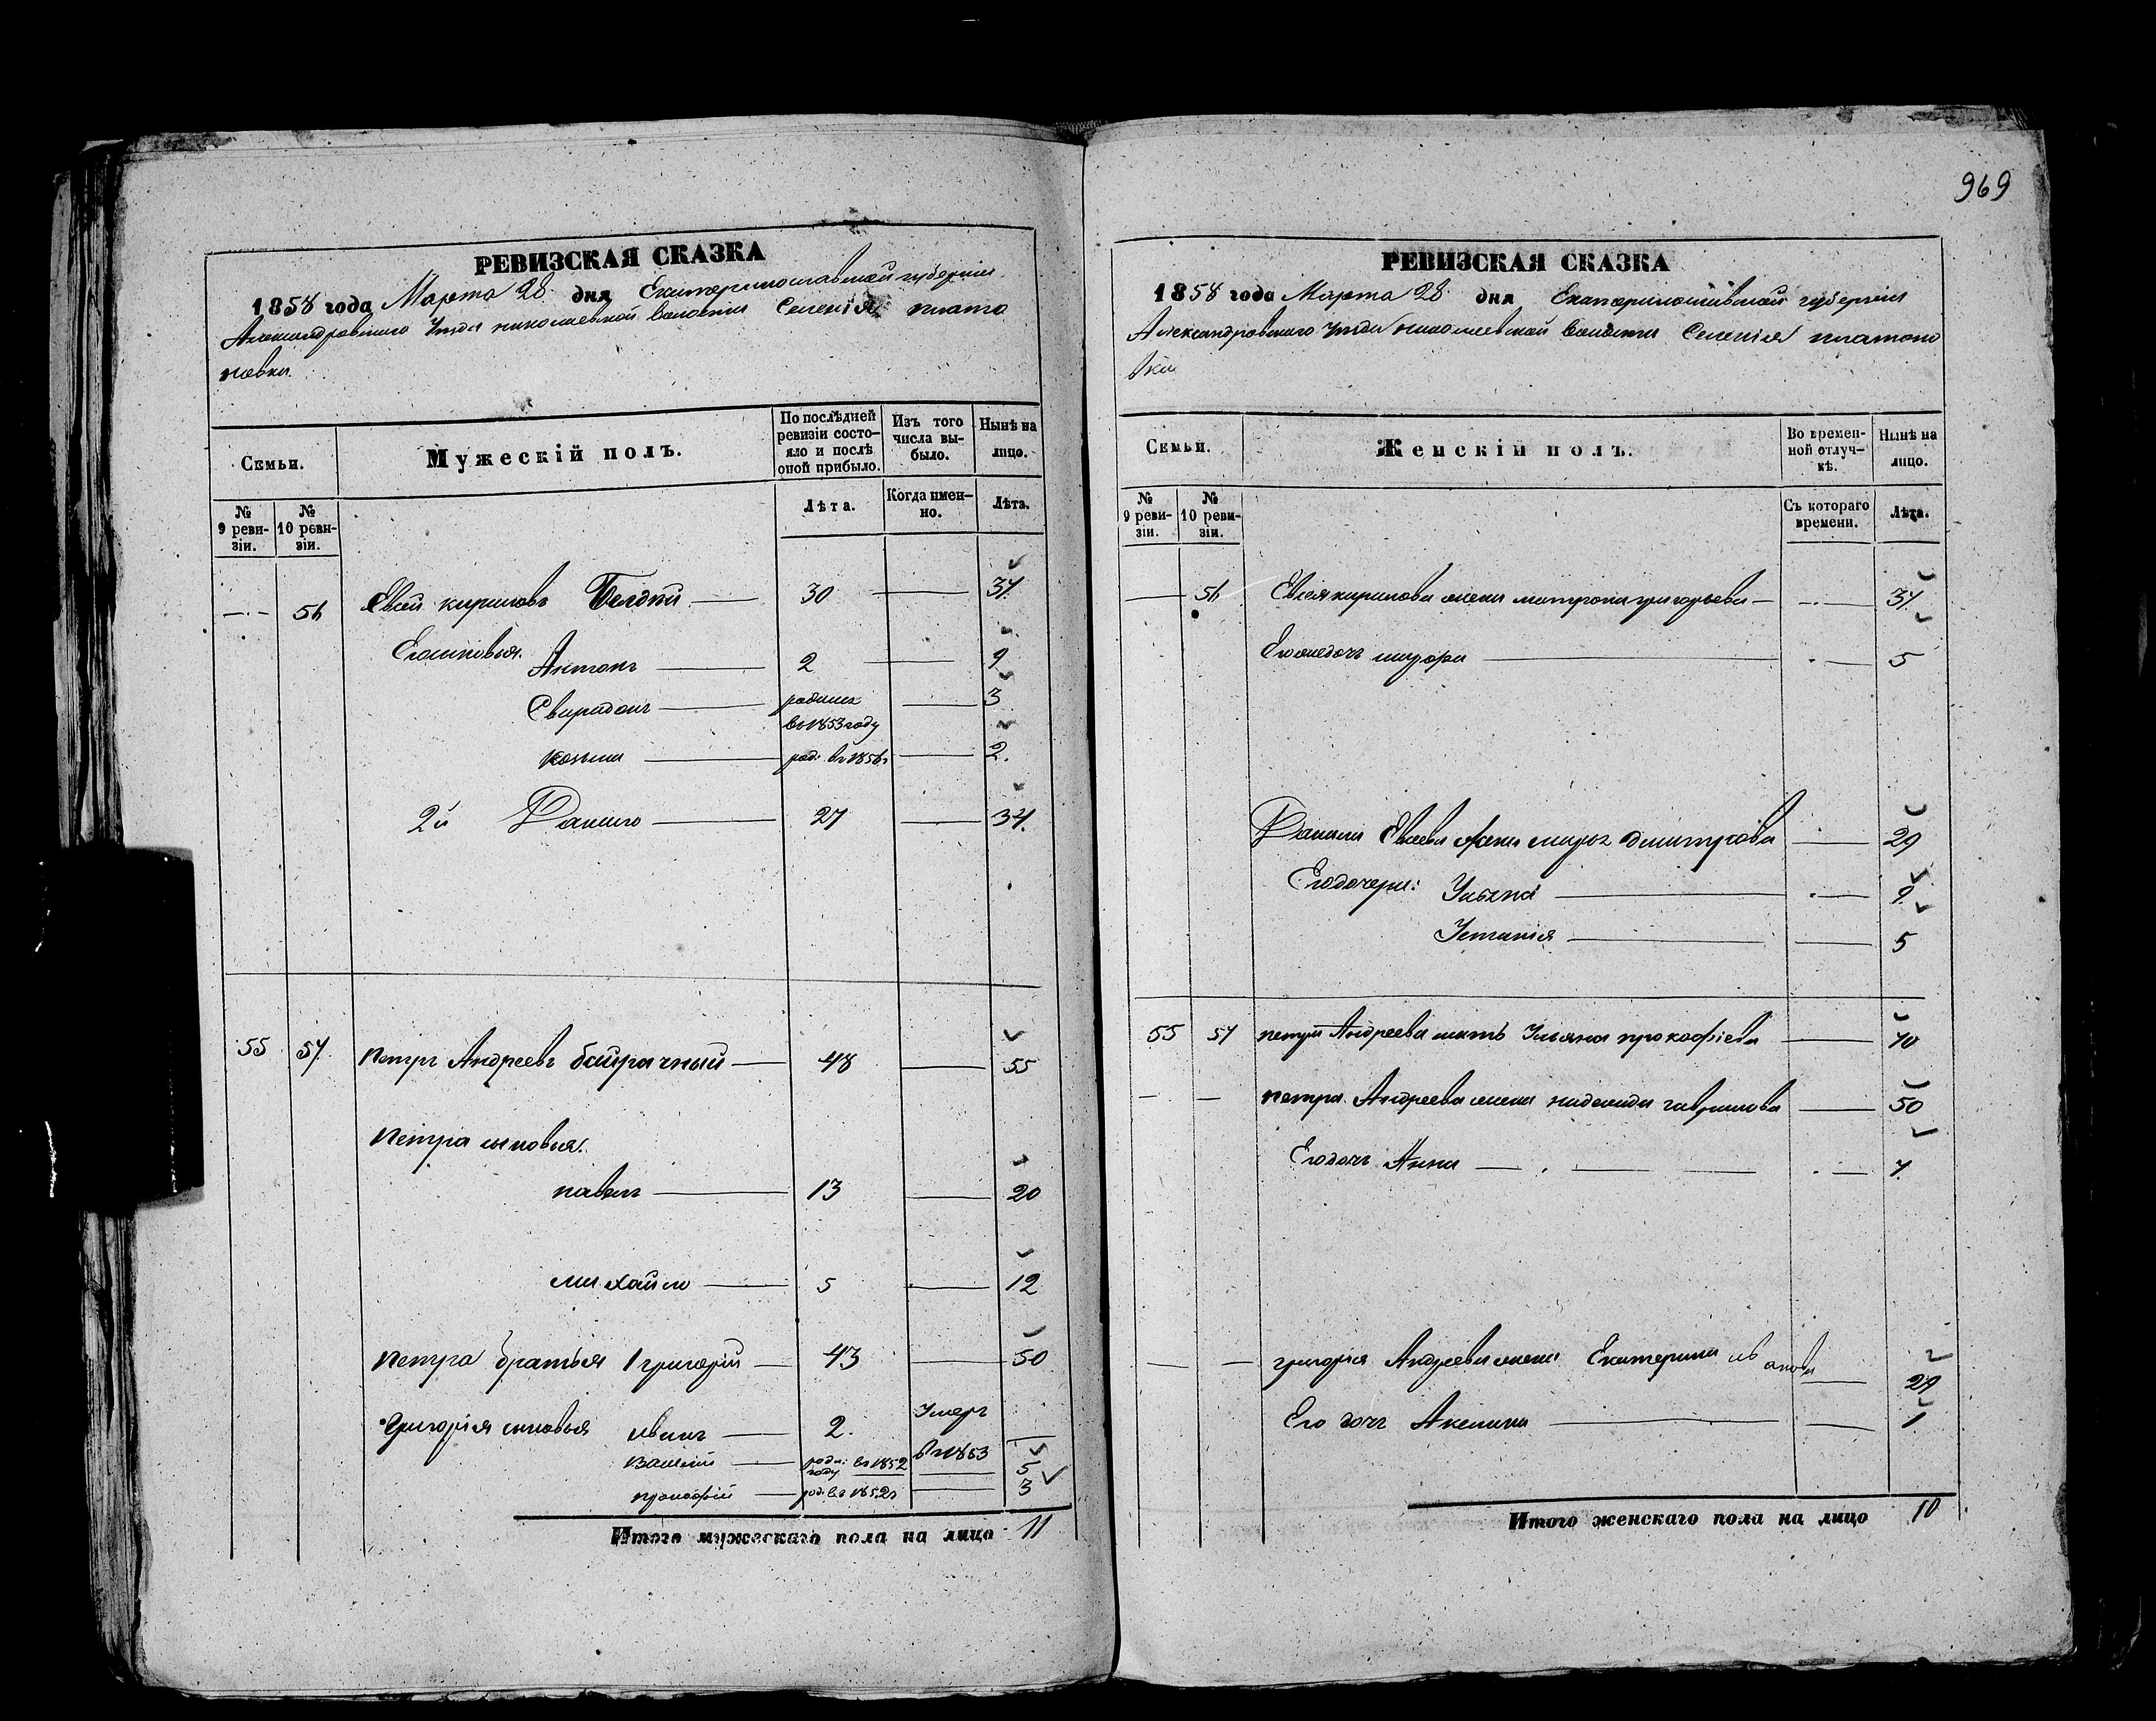 969
РЕВИЗСКАЯ СКАЗКА
1858 года Марта 28 дня Екатеринославской губернии
Александровского уезда николаевской волости Селенія плато
новки
Семьи.
Мужескій полъ.
По послѣдней ревизіи состо-яло и послѣ оной прибыло.
Изъ того числа вы-было.
Нынѣ на лицо.
№ 9 реви-зіи.
№ 10 реви-зіи.
Лѣта.
Когда имен-но.
Лѣта.
56 Евсей кириловъ 30 37
Его сыновья. Антонъ 2 9
Свиридонъ родился въ 1853 году 3
козьма род: въ 1856 2.
2й Данило 27 34.
55 57 Петръ Андреевъ байрачный 48 55
Петра сыновья:
павелъ 13 20
михайло 5 12
Петра братья 1 григорій 43 50
Григорія сыновья иванъ 2. Умеръ въ 1853
Василій роди: въ 1852 году 5
прокофій род: въ 1852 3
Итого мужескаго пола на лицо 11
РЕВИЗСКАЯ СКАЗКА
1858 года Марта 28 дня Екатеринославской губернии
Александровского уезда николаевской волости Селенія платоно
вки
Семьи.
Женскій полъ.
Во времен-ной отлуч-кѣ.
Нынѣ на лицо.
№ 9 реви-зіи.
№ 10 реви-зіи.
Съ котораго времени.
Лѣта.
56 Евсея кирилова жена матрона григорьева 37
5
Данила Евсеева жена дмитрова 29
Его дочери: Ульяна 9
Устинія 5
55 57 петра Андреева мать Ульяна прокофіева 70
петра Андреева жена гаврилова 50
Его дочь Анна 7.
григорія Андреева жена Екатерина иванова 29
Его дочь Акилина 1
Итого женскаго пола на лицо 10